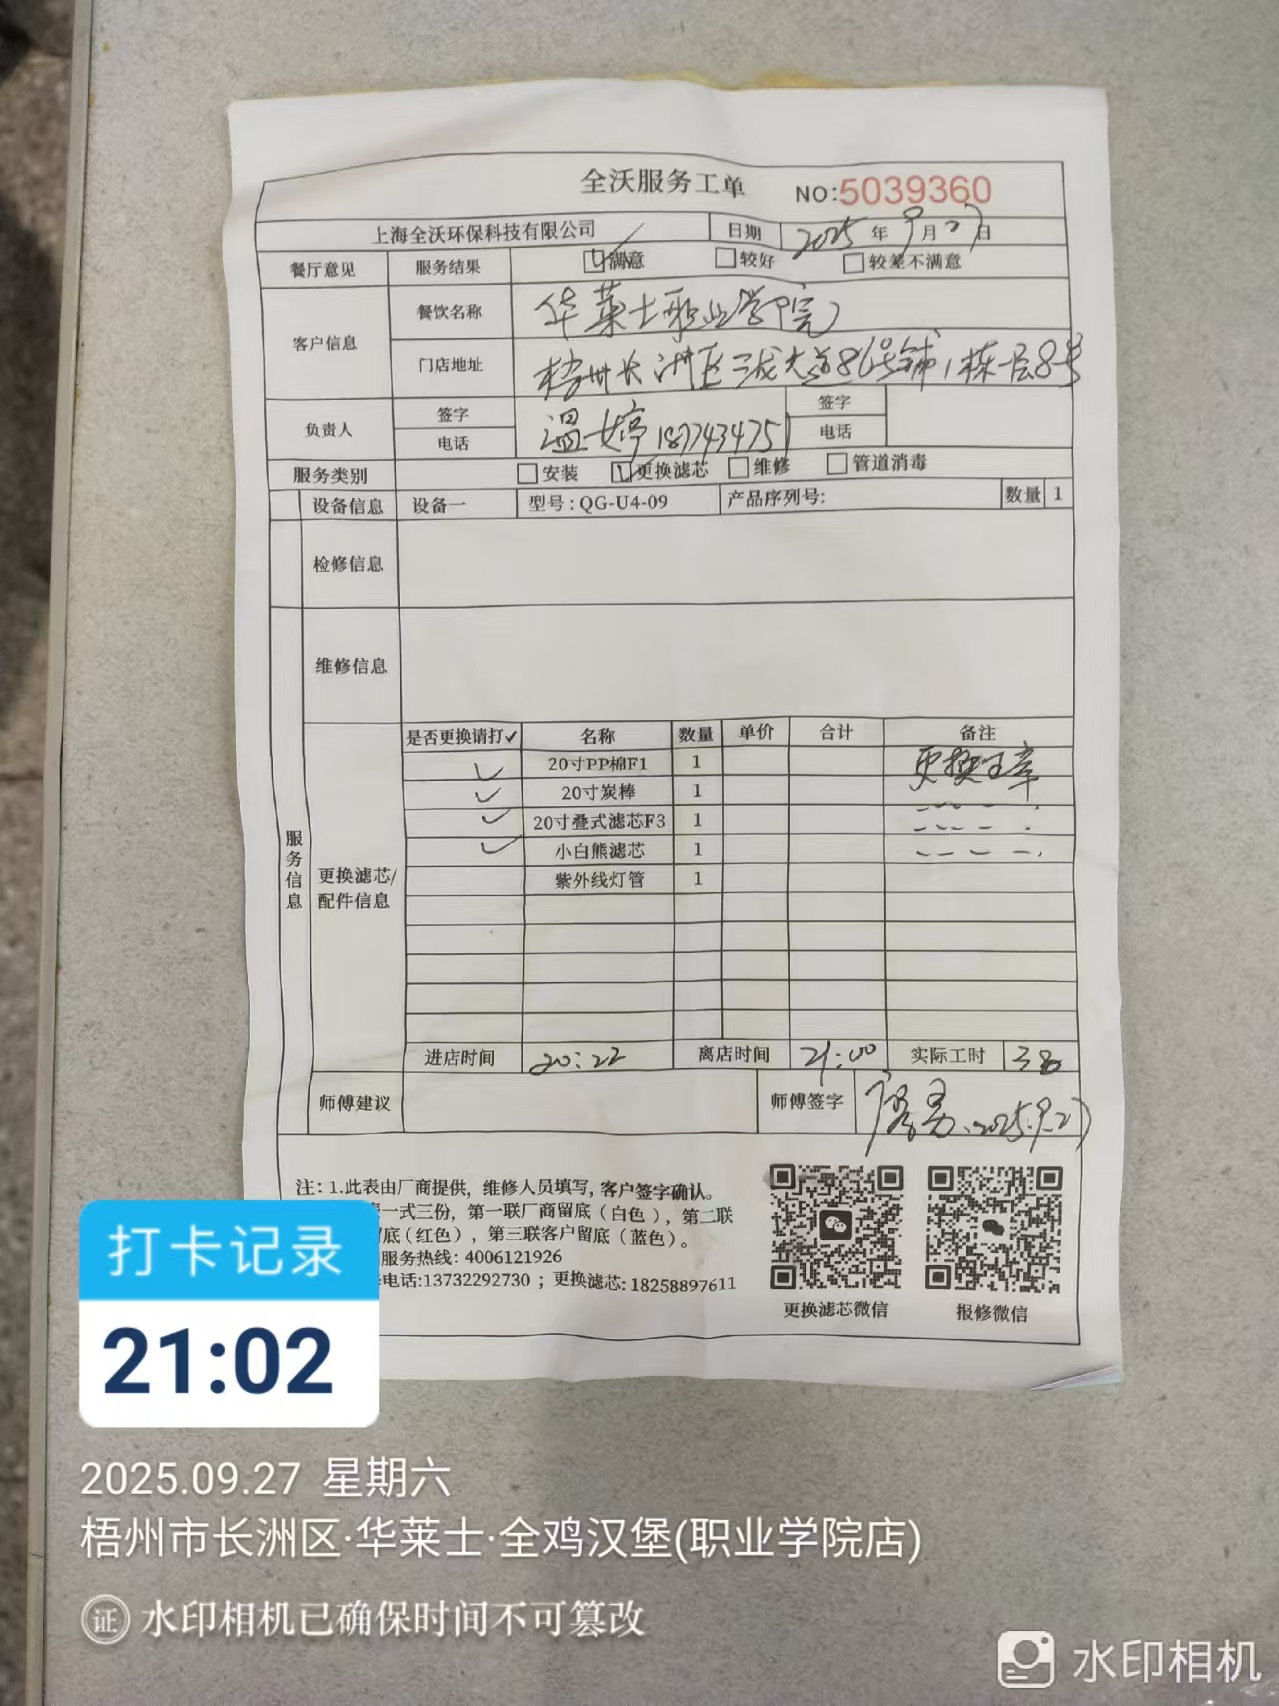 全沃服务工单 NO:5039360
上海全沃环保科技有限公司 日期 2025 年 9 月 27 日
餐厅意见 服务结果 满意 较好 较差不满意
客户信息 餐饮名称 华莱士职业学院
门店地址 梧州长洲区三龙大道86号铺1栋一层8号
负责人 签字 温婷 签字
电话 电话
服务类别 安装 更换滤芯 维修 管道消毒
设备信息 设备一 型号:QG-U4-09 产品序列号: 数量 1
检修信息
维修信息
服务信息
更换滤芯/配件信息
是否更换请打✓ 名称 数量 单价 合计 备注
✓ 20寸PP棉F1 1 更换
✓ 20寸炭棒 1
✓ 20寸叠式滤芯F3 1
✓ 小白熊滤芯 1
紫外线灯管 1
进店时间 20:22 离店时间 21:00 实际工时 38
师傅建议 师傅签字 2025.9.27
注: 1.此表由厂商提供, 维修人员填写, 客户签字确认。
一式三份, 第一联厂商留底(白色), 第二联
底(红色), 第三联客户留底(蓝色)。
服务热线: 4006121926
电话:13732292730 ; 更换滤芯: 18258897611
更换滤芯微信 报修微信
打卡记录
21:02
2025.09.27 星期六
梧州市长洲区·华莱士·全鸡汉堡(职业学院店)
证 水印相机已确保时间不可篡改
水印相机